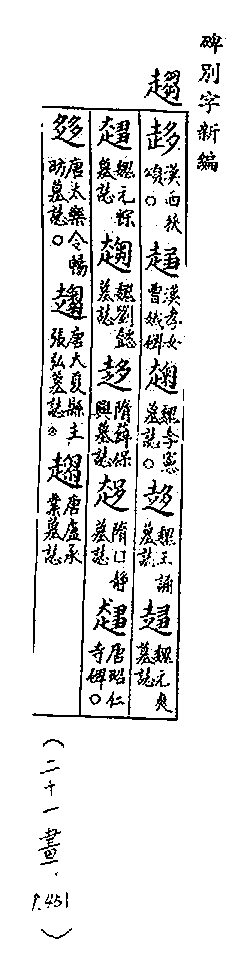 碑別字新編
趨
趍 漢西狹頌。 漢孝女曹娥碑 魏李憲墓誌。 趍 魏王誦墓誌 魏元爽墓誌
魏元悰墓誌 魏劉懿墓誌 趍 隋薛保興墓誌 隋口静墓誌 唐昭仁寺碑。
唐太樂令暢昉墓誌。 唐大夏縣主張弘墓誌。 趨 唐盧承業墓誌
(二十一畫. P.451)